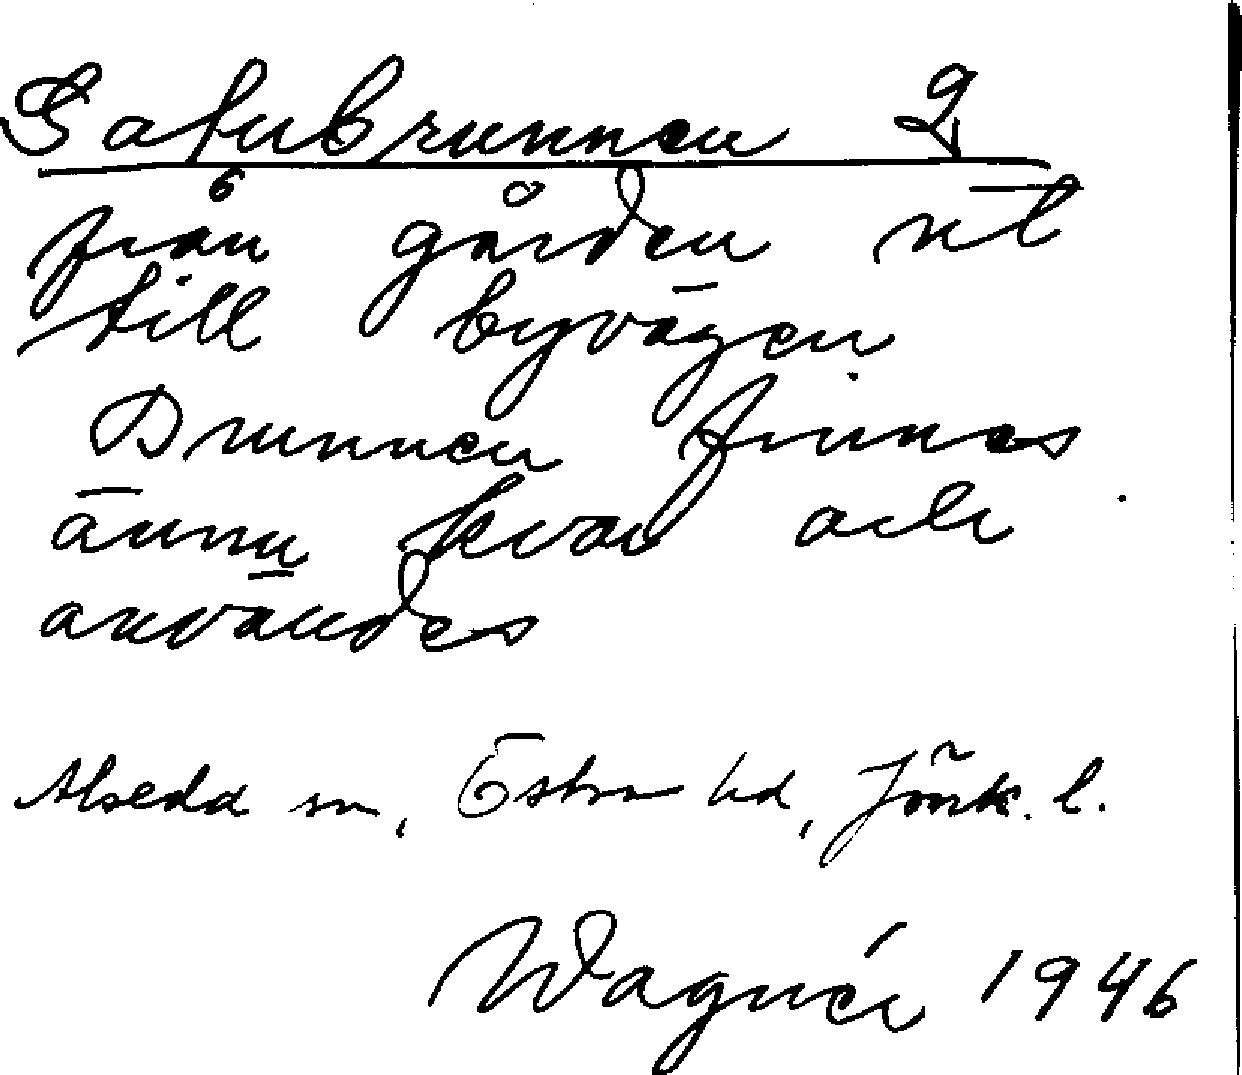 Gatubrunnen 2
från gården ut
till byvägen
Brunnen finnes
ännu kvar och
användes
Alseda sn, Östra hd, Jönk. l.
Wagnér 1946